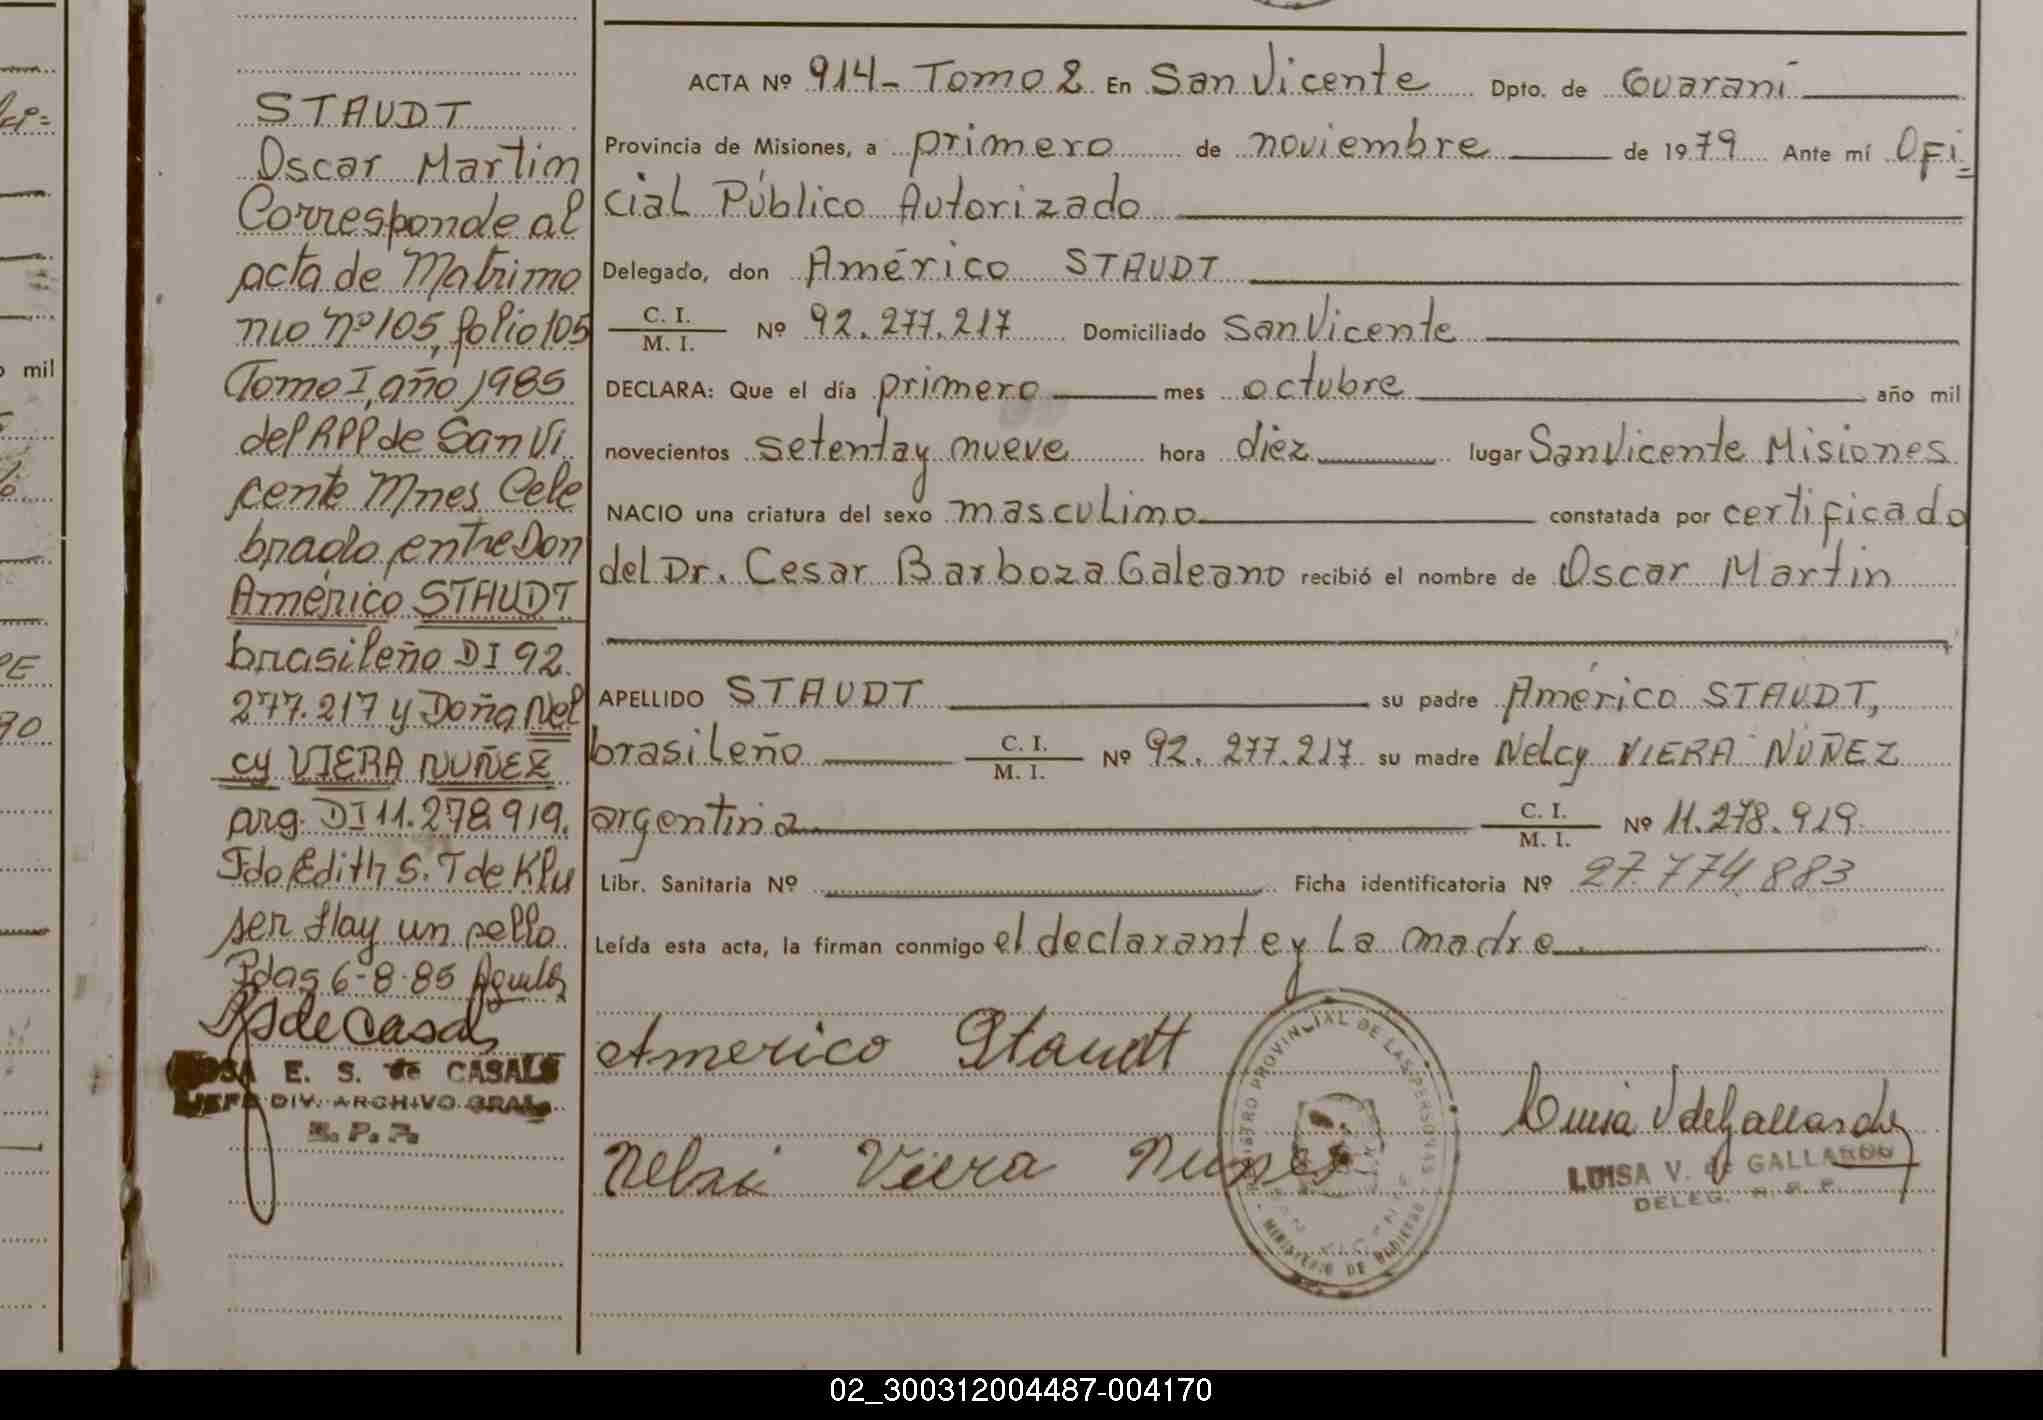 STAUDT
Oscar Martin
Corresponde al
acta de Matrimo
nio nº 105, folio 105
Tomo I, año 1985
del RPP de San Vi
cente Mnes Cele
brado entre Don
Américo STAUDT
brasileño DI 92.
277.217 y Doña Nel
cy VIERA NUÑEZ
arg. DI 11.278.919.
Fdo Edith S. T de Klu
ser Hay un sello
Pdas 6-8-85
de Casals
E. S. de CASALS
JEFE DIV. ARCHIVO GRAL.
R. P. P.
ACTA Nº 914- Tomo 2 En San Vicente Dpto. de Guaraní
Provincia de Misiones, a primero de noviembre de 1979 Ante mí Ofi=
cial Público Autorizado
Delegado, don Américo STAUDT
C. I.
M. I. Nº 92.277.217 Domiciliado San Vicente
DECLARA: Que el día primero mes octubre año mil
novecientos setenta y nueve hora diez lugar San Vicente Misiones
NACIO una criatura del sexo masculino constatada por certificado
del Dr. Cesar Barboza Galeano recibió el nombre de Oscar Martin
APELLIDO STAUDT su padre Américo STAUDT,
brasileño C. I. M. I. Nº 92.277.217 su madre Nelcy VIERA NUÑEZ
argentina C. I. M. I. Nº 11.278.919
Libr. Sanitaria Nº Ficha identificatoria Nº 27.774.883
Leída esta acta, la firman conmigo el declarante y La madre
Americo Staudt
REGISTRO PROVINCIAL DE LAS PERSONAS
MINISTERIO DE GOBIERNO
Viera Nunes
Luisa V de Gallardo
LUISA V. de GALLARDO
DELEG. R. P. P.
mil
02_300312004487-004170